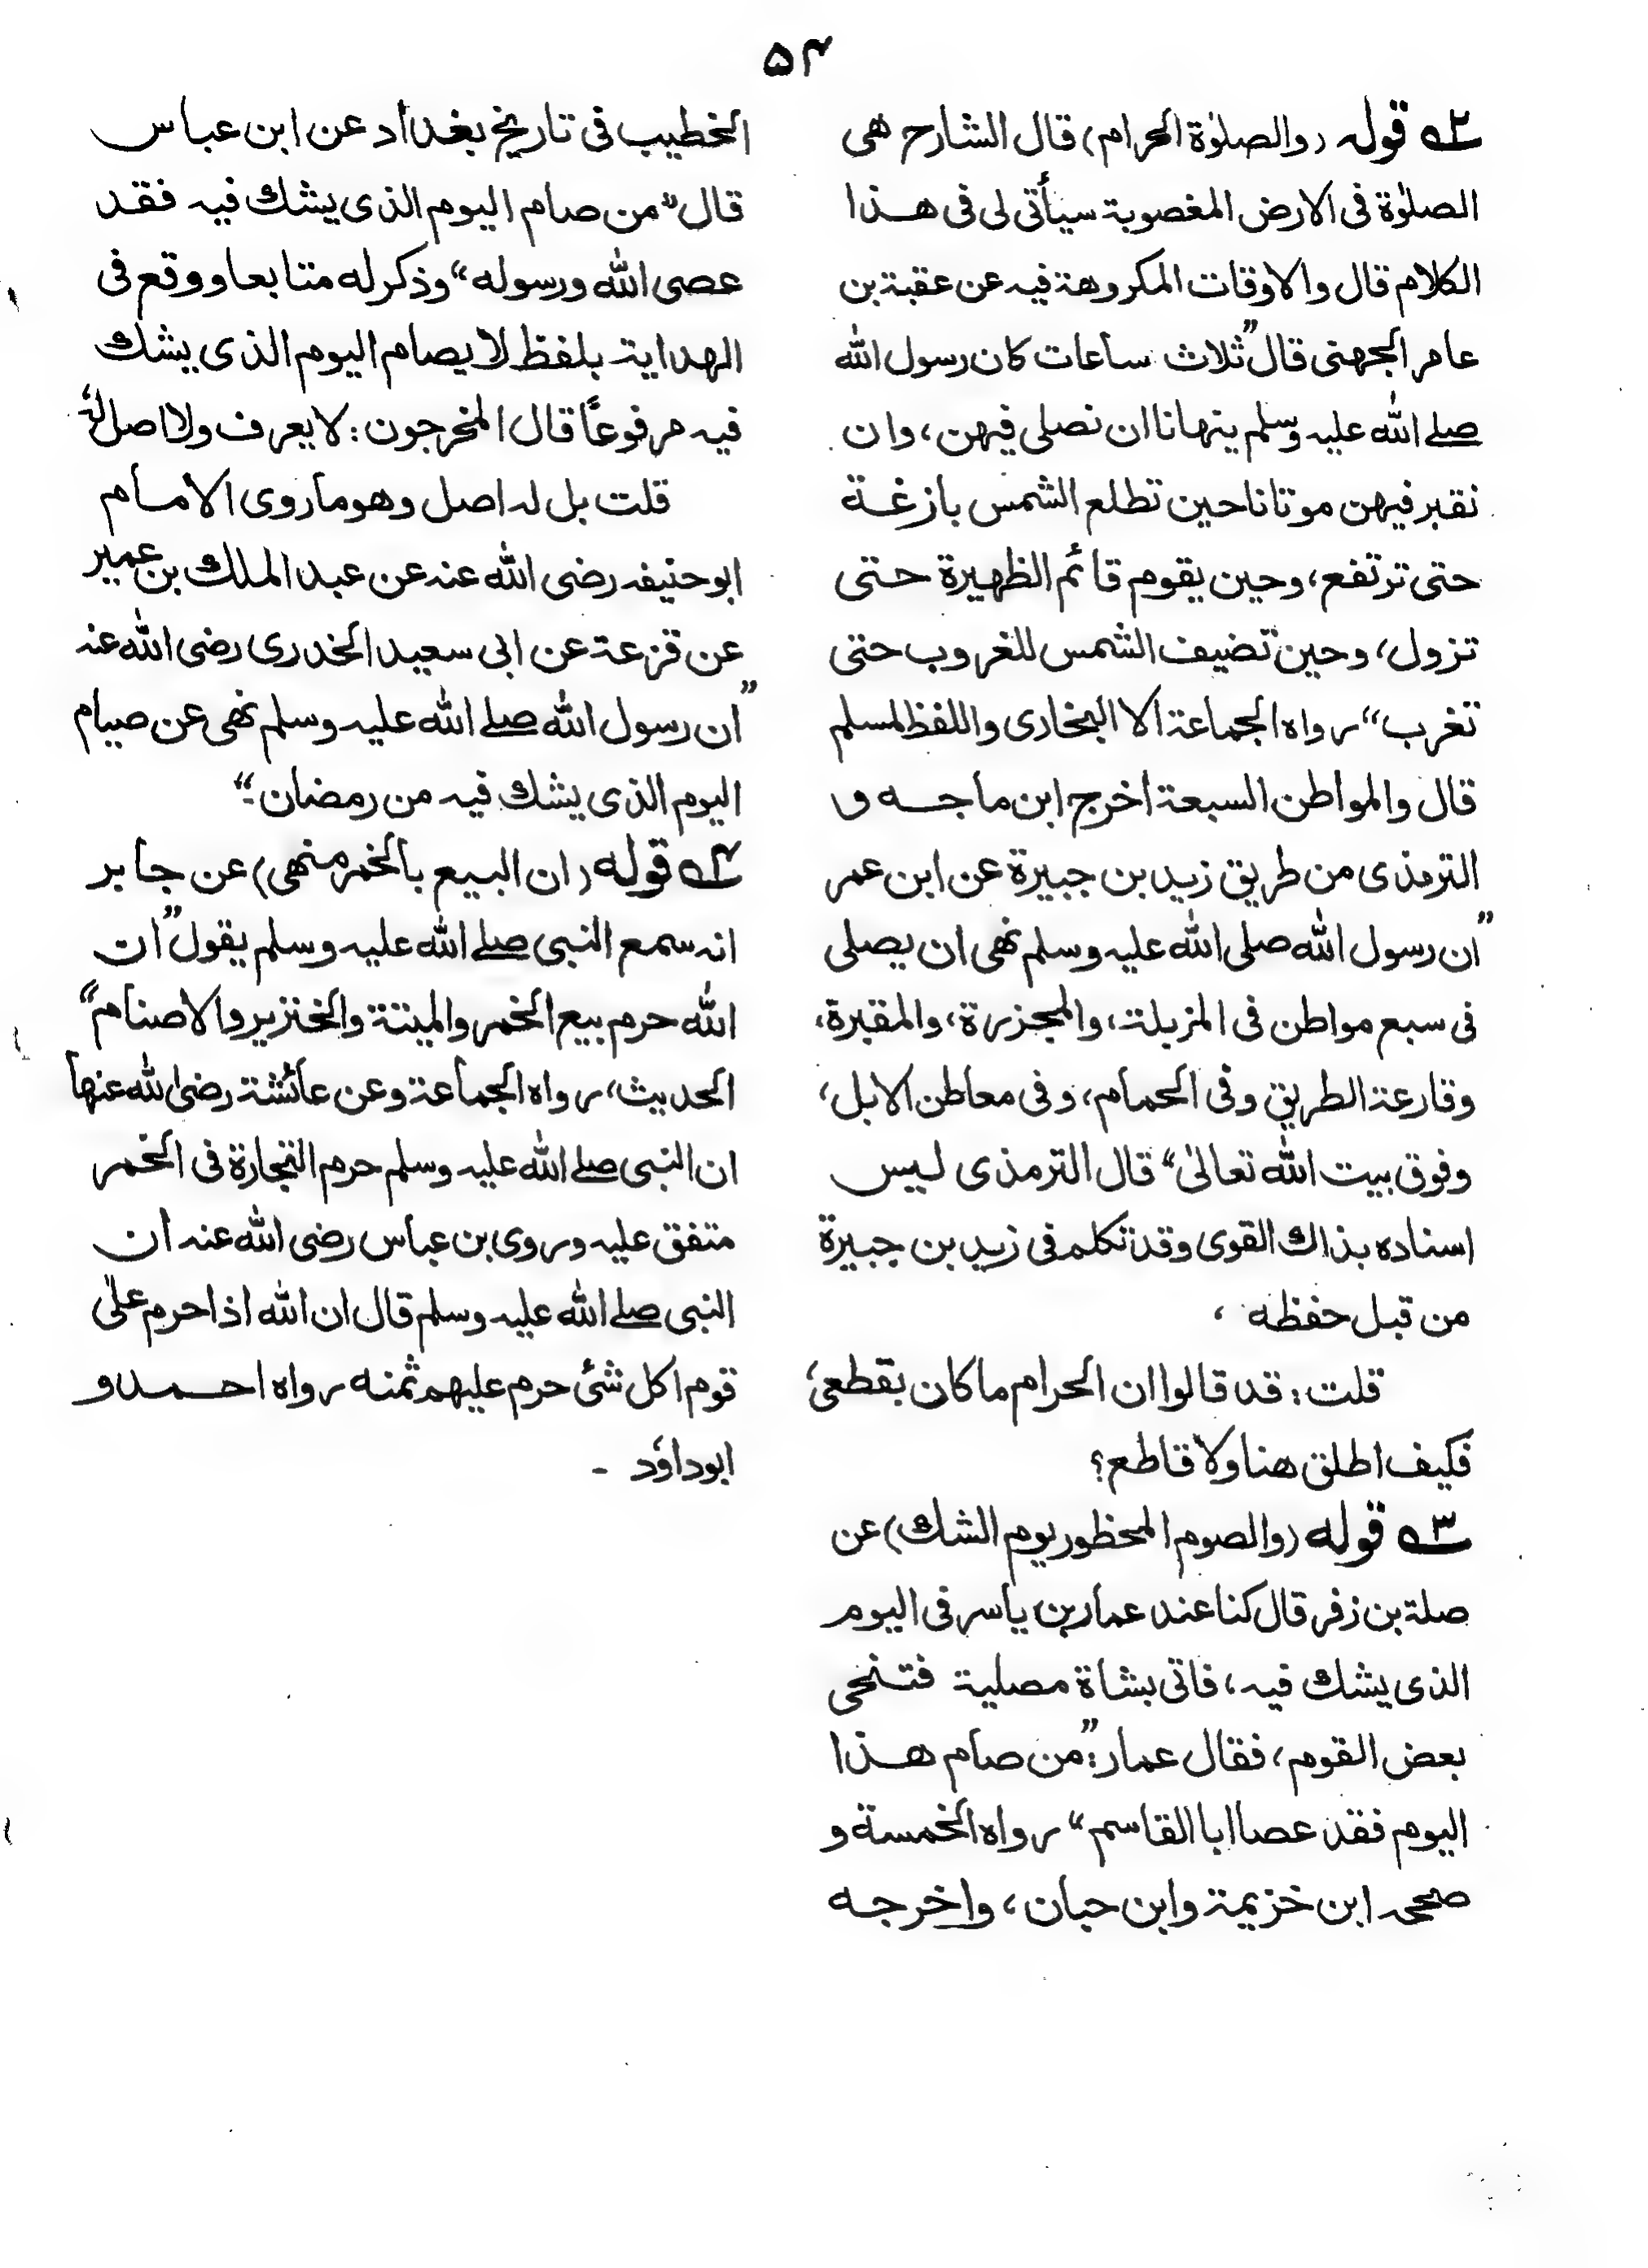 ۵۴
۲ قوله (والصلوٰة الحرام) قال الشارح هى
الصلوٰة فى الارض المغصوبة سيأتى لى فى هذا
الكلام قال والاوقات المكروهة فيه عن عقبة بن
عامر الجهنى قال "ثلاث ساعات كان رسول الله
صلے الله عليه وسلم ينهانا ان نصلى فيهن، وان
نقبر فيهن موتانا حين تطلع الشمس بازغة
حتى ترتفع، وحين يقوم قائم الظهيرة حتى
تزول، وحين تضيف الشمس للغروب حتى
تغرب" رواه الجماعة الا البخارى واللفظ لمسلم
قال والمواطن السبعة اخرج ابن ماجه و
الترمذى من طريق زيد بن جبيرة عن ابن عمر
"ان رسول الله صلى الله عليه وسلم نهى ان يصلى
فى سبع مواطن فى المزبلة، والمجزرة، والمقبرة،
وقارعة الطريق وفى الحمام، وفى معاطن الابل،
وفوق بيت الله تعالىٰ" قال الترمذى ليس
اسناده بذاك القوى وقد تكلم فى زيد بن جبيرة
من قبل حفظه ،
قلت: قد قالوا ان الحرام ما كان بقطعى،
فكيف اطلق هنا ولا قاطع؟
۳ قوله (والصوم المحظور يوم الشك) عن
صلة بن زفر قال كنا عند عمار بن ياسر فى اليوم
الذى يشك فيه، فاتى بشاة مصلية فتنحى
بعض القوم، فقال عمار: "من صام هذا
اليوم فقد عصا ابا القاسم" رواه الخمسة و
صححه ابن خزيمة وابن حبان، واخرجه
الخطيب فى تاريخ بغداد عن ابن عباس
قال "من صام اليوم الذى يشك فيه فقد
عصى الله ورسوله" وذكر له متابعا ووقع فى
الهداية بلفظ لا يصام اليوم الذى يشك
فيه مرفوعًا قال المخرجون: لا يعرف ولا اصل له،
قلت بل له اصل وهو ما روى الامام
ابوحنيفه رضى الله عنه عن عبد الملك بن عمير
عن قزعة عن ابى سعيد الخدرى رضى الله عنه
"ان رسول الله صلے الله عليه وسلم نهى عن صيام
اليوم الذى يشك فيه من رمضان-"
۴ قوله (ان البيع بالخمر منهى) عن جابر
انه سمع النبى صلے الله عليه وسلم يقول "ان
الله حرم بيع الخمر والميتة والخنزير والاصنام"
الحديث، رواه الجماعة وعن عائشة رضى الله عنها
ان النبى صلے الله عليه وسلم حرم التجارة فى الخمر
متفق عليه وروى بن عباس رضى الله عنه ان
النبى صلے الله عليه وسلم قال ان الله اذا حرم علىٰ
قوم اكل شئ حرم عليهم ثمنه رواه احمد و
ابوداؤد -